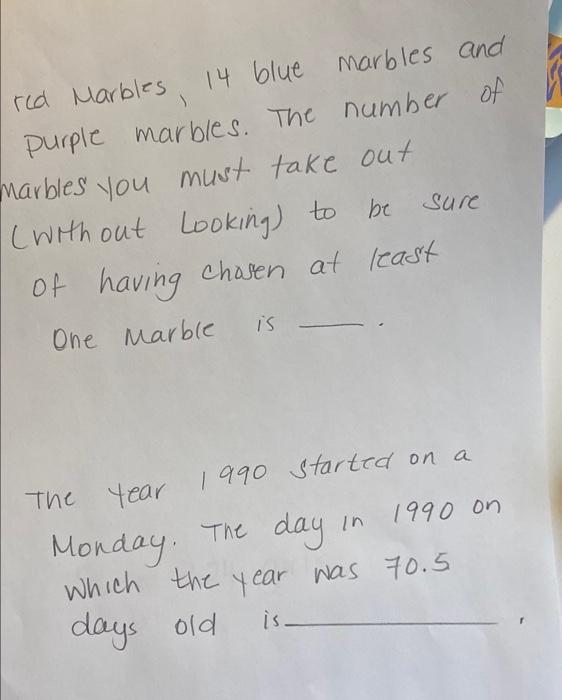 red Marbles, 14 blue marbles and
purple marbles. The number of
marbles you must take out
(without Looking) to be sure
of having chosen at least
One Marble is ___.
The year 1990 started on a
Monday. The day in 1990 on
which the year was 70.5
days old is ___.